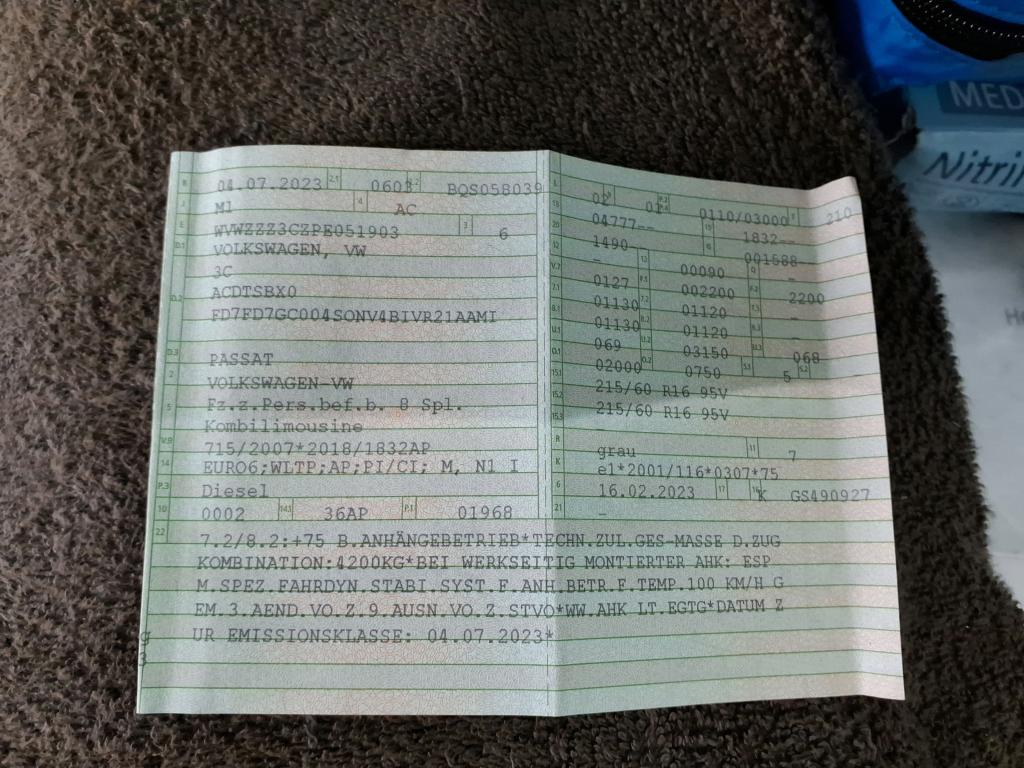 B 04.07.2023 2.1 0603 2.2 BQS058039
J M1 4 AC
E WVWZZZ3CZPE051903 3 6
D.1 VOLKSWAGEN, VW
3C
D.2 ACDTSBX0
FD7FD7GC004SONV4BIVR21AAMI
D.3 PASSAT
2 VOLKSWAGEN-VW
5 Fz.z.Pers.bef.b. 8 Spl.
Kombilimousine
V.9 715/2007*2018/1832AP
14 EURO6;WLTP;AP;PI/CI; M, N1 I
P.3 Diesel
10 0002 14.1 36AP P.1 01968
L 02 9 01 P.2 P.4 0110/03000 T 210
18 04777-- 19 1832--
20 1490-- G 001588--
12 - 13 00090 Q -
V.7 0127 F.1 002200 F.2 2200
7.1 01130 7.2 01120 7.3 -
8.1 01130 8.2 01120 8.3 -
U.1 069 U.2 03150 U.3 068
O.1 02000 O.2 0750 S.1 5 S.2
15.1 215/60 R16 95V
15.2 215/60 R16 95V
15.3 -
R grau 11 7
K e1*2001/116*0307*75
6 16.02.2023 17 K 16 GS490927
21 -
22 7.2/8.2:+75 B.ANHÄNGEBETRIEB*TECHN.ZUL.GES-MASSE D.ZUG
KOMBINATION:4200KG*BEI WERKSEITIG MONTIERTER AHK: ESP
M.SPEZ.FAHRDYN.STABI.SYST.F.ANH.BETR.F.TEMP.100 KM/H G
EM.3.AEND.VO.Z.9.AUSN.VO.Z.STVO*WW.AHK LT.EGTG*DATUM Z
UR EMISSIONSKLASSE: 04.07.2023*
g
3
MED
Nitri